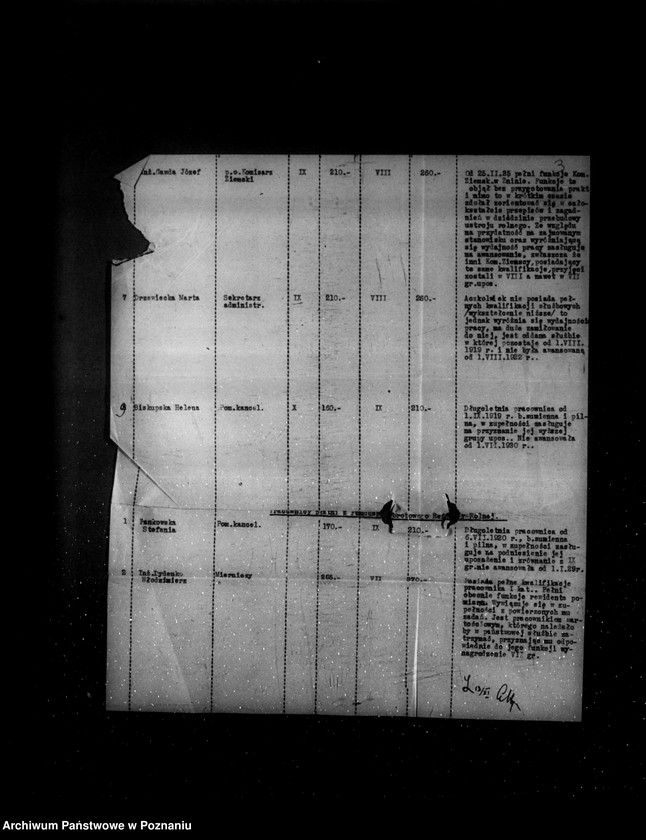 3
inż. Gawda Józef p.o.Komisarz Ziemski IX 210.- VIII 260.-
Od 25.II.35 pełni funkcje Kom.
Ziemsk.w Żninie. Funkcje te
objął bez przygotowania prakt
i mimo to w krótkim czasie
zdołał zorientować się w cało-
kształcie przepisów i zagad-
nień w dziedzinie przebudowy
ustroju rolnego. Ze względu
na przydatność na zajmowanym
stanowisku oraz wyróżniającą
się wydajność pracy zasługuje
na awansowanie, zwłaszcza że
inni Kom.Ziemscy, posiadający
te same kwalifikacje, przyjęci
zostali w VIII a nawet w VII
gr.upos.
7 Drzewiecka Marta Sekretarz administr. IX 210.- VIII 260.-
Aczkolwiek nie posiada peł-
nych kwalifikacji służbowych
/wykształcenie niższe/ to
jednak wyróżnia się wydajności
pracy, ma duże zamiłowanie
do niej, jest oddana służbie
w której pozostaje od 1.VIII.
1919 r. i nie była awansowana
od 1.VIII.1922 r..
9 Biskupska Helena Pom.kancel. X 160.- IX 210.-
Długoletnia pracownica od
1.IX.1919 r. b.sumienna i pil-
na, w zupełności zasługuje
na przyznanie jej wyższej
grupy upos.. Nie awansowała
od 1.VII.1930 r..
Pracownicy płatni z Funduszu Obrotowego Reformy Rolnej.
1 Pankowska Stefania Pom.kancel. 170.- IX 210.-
Długoletnia pracownica od
6.VII.1920 r., b.sumienna
i pilna, w zupełności zasłu-
guje na podniesienie jej
uposażenia i zrównanie z IX
gr.nie awansowała od 1.I.29r.
2 Inż.Tydenko Włodzimierz Mierniczy VII
Posiada pełne kwalifikacje
pracownika I kat.. Pełni
obecnie funkcje rewidenta po-
miaru. Wywiązuje się w zu-
pełności z powierzonych mu
zadań. Jest pracownikiem war-
tościowym, którego należało
by w państwowej służbie za-
trzymać, przyznając mu odpo-
wiednie do jego funkcji wy-
nagrodzenie VII gr.
Archiwum Państwowe w Poznaniu